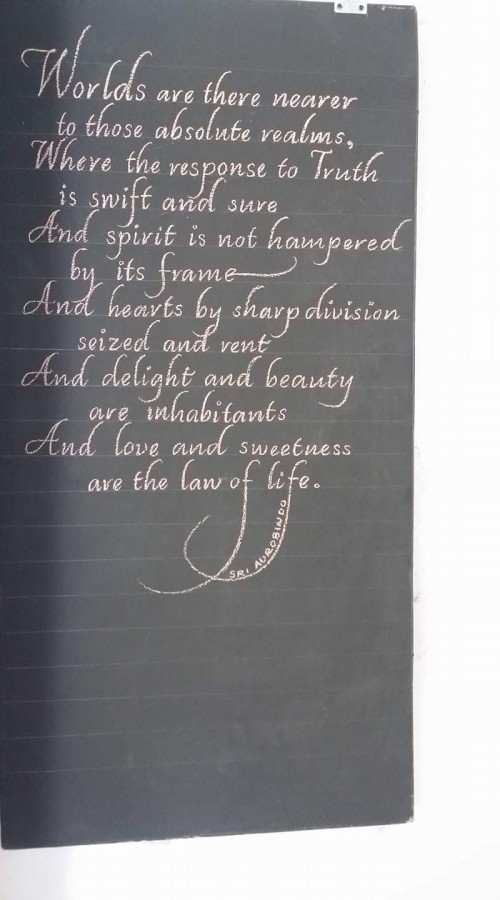 Worlds are there nearer
to those absolute realms,
Where the response to Truth
is swift and sure
And spirit is not hampered
by its frame
And hearts by sharp division
seized and rent
And delight and beauty
are inhabitants
And love and sweetness
are the law of life.
SRI AUROBINDO